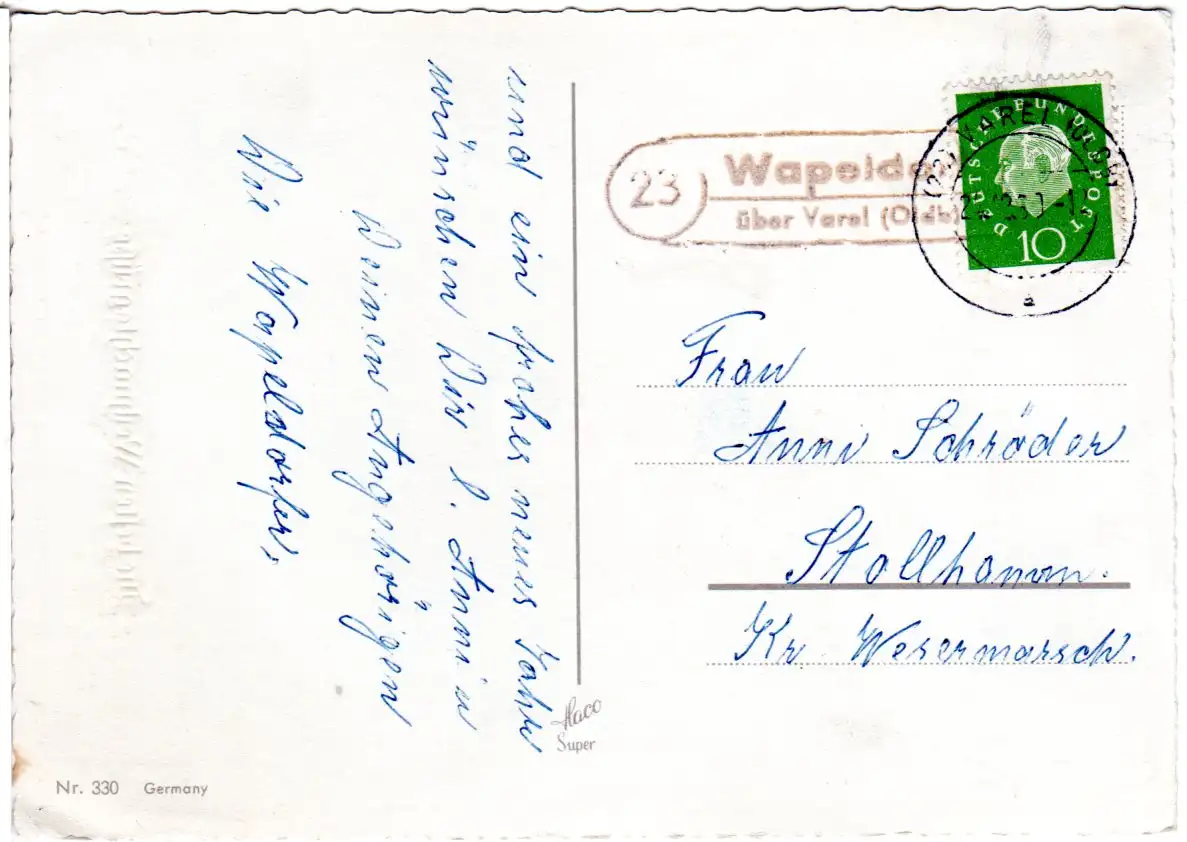 und ein frohes neues Jahr
wünschen Dir l. Anni u
Deinen Angehörigen
Die Wapeldorfer.
Nr. 330 Germany
Haco
Super
23
Wapeldo
über Varel (Oldb)
(23) VAREL (OLDB)
a
DEUTSCHE BUNDESPOST
10
Frau
Anni Schröder
Stollhamm.
Kr. Wesermarsch.